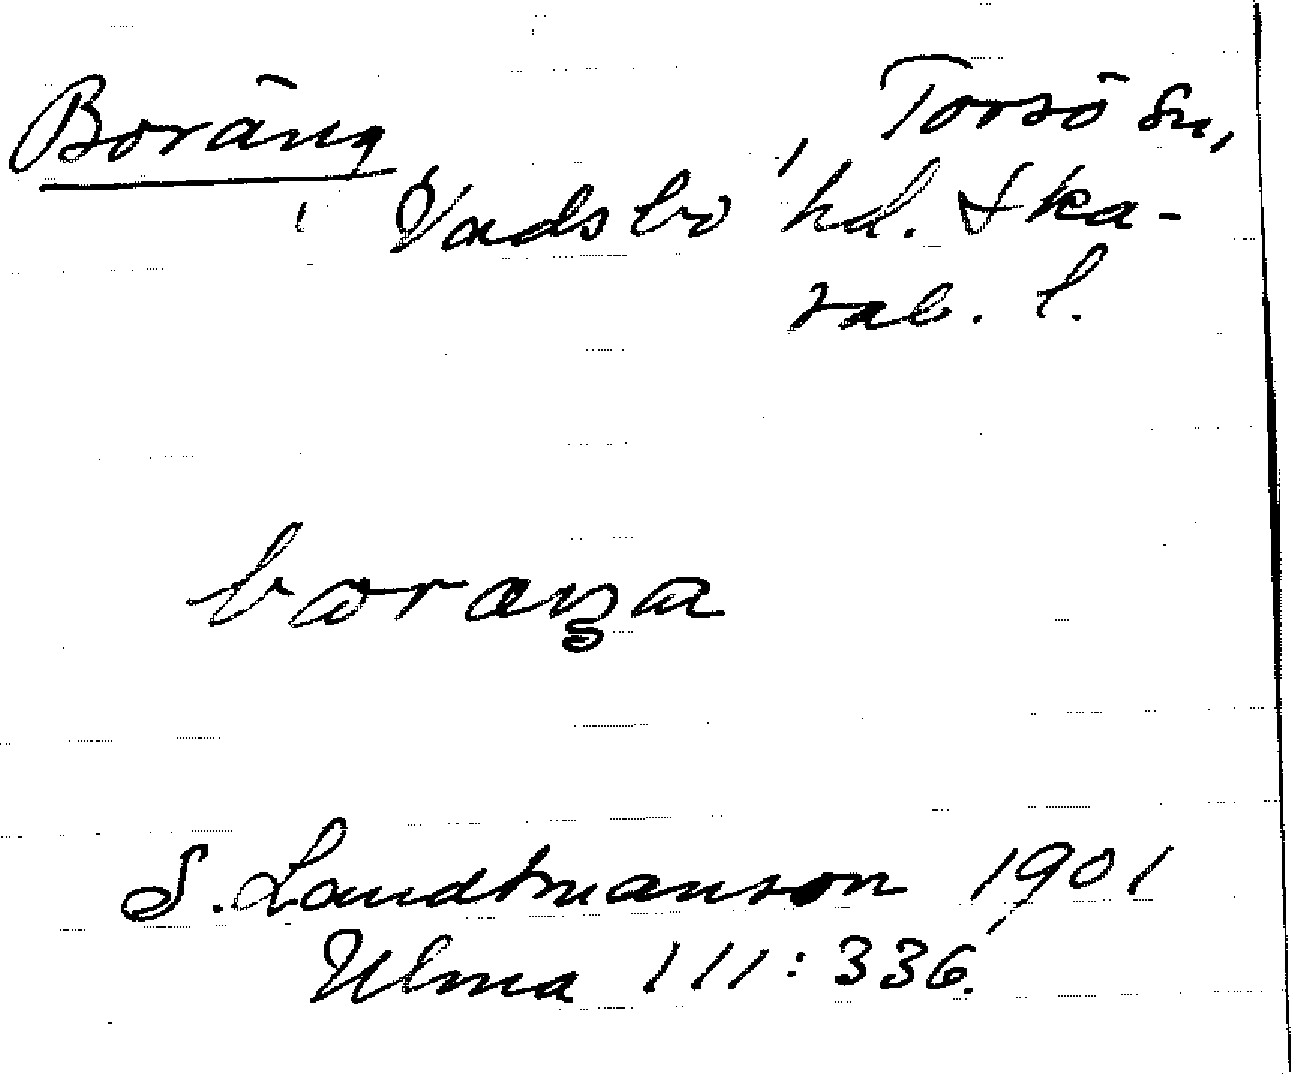 Boräng
Torsö sn,
Vadsbo hd. Ska-
rab. l.
S. Landtmanson 1901
Ulma 111:336.